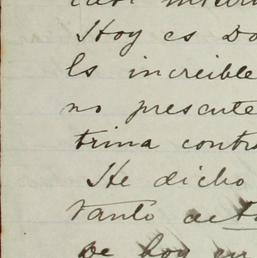 Hoy es Do
Es increible
no presente
trina contr
He dicho
tanto
de hoy en